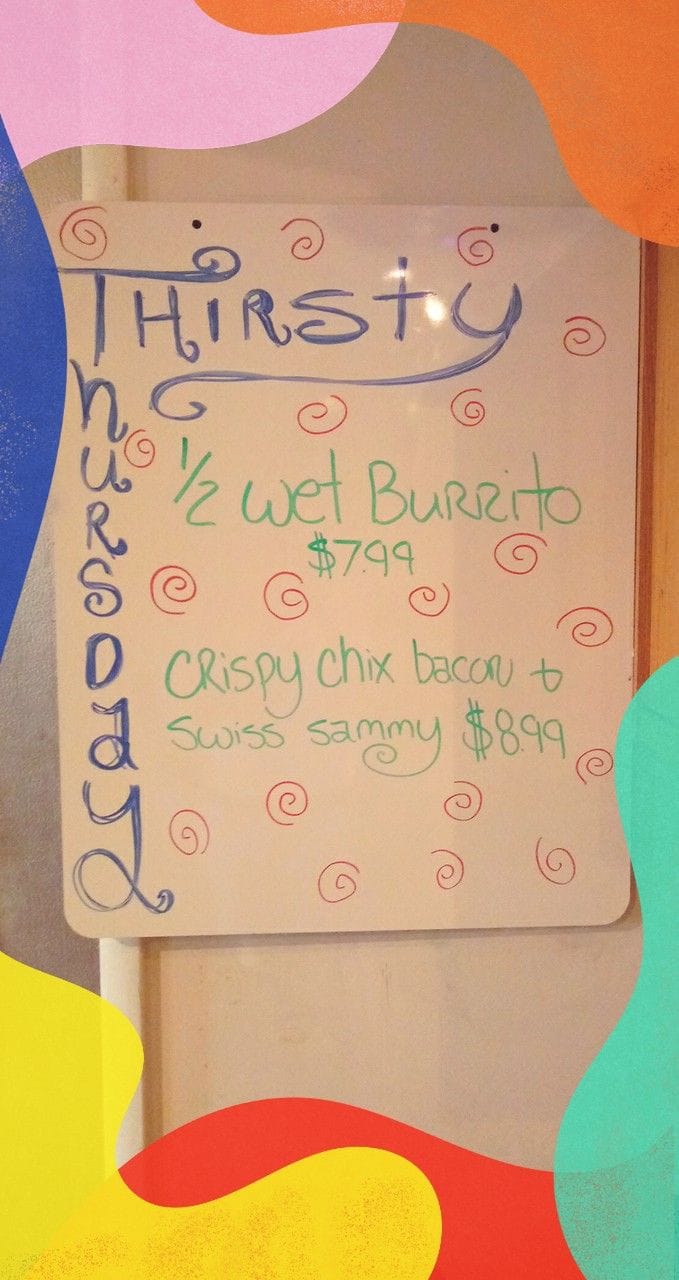 THIRSTY
ThursDay
1/2 wet Burrito
$7.99
CRispy chix bacon +
swiss sammy $8.99